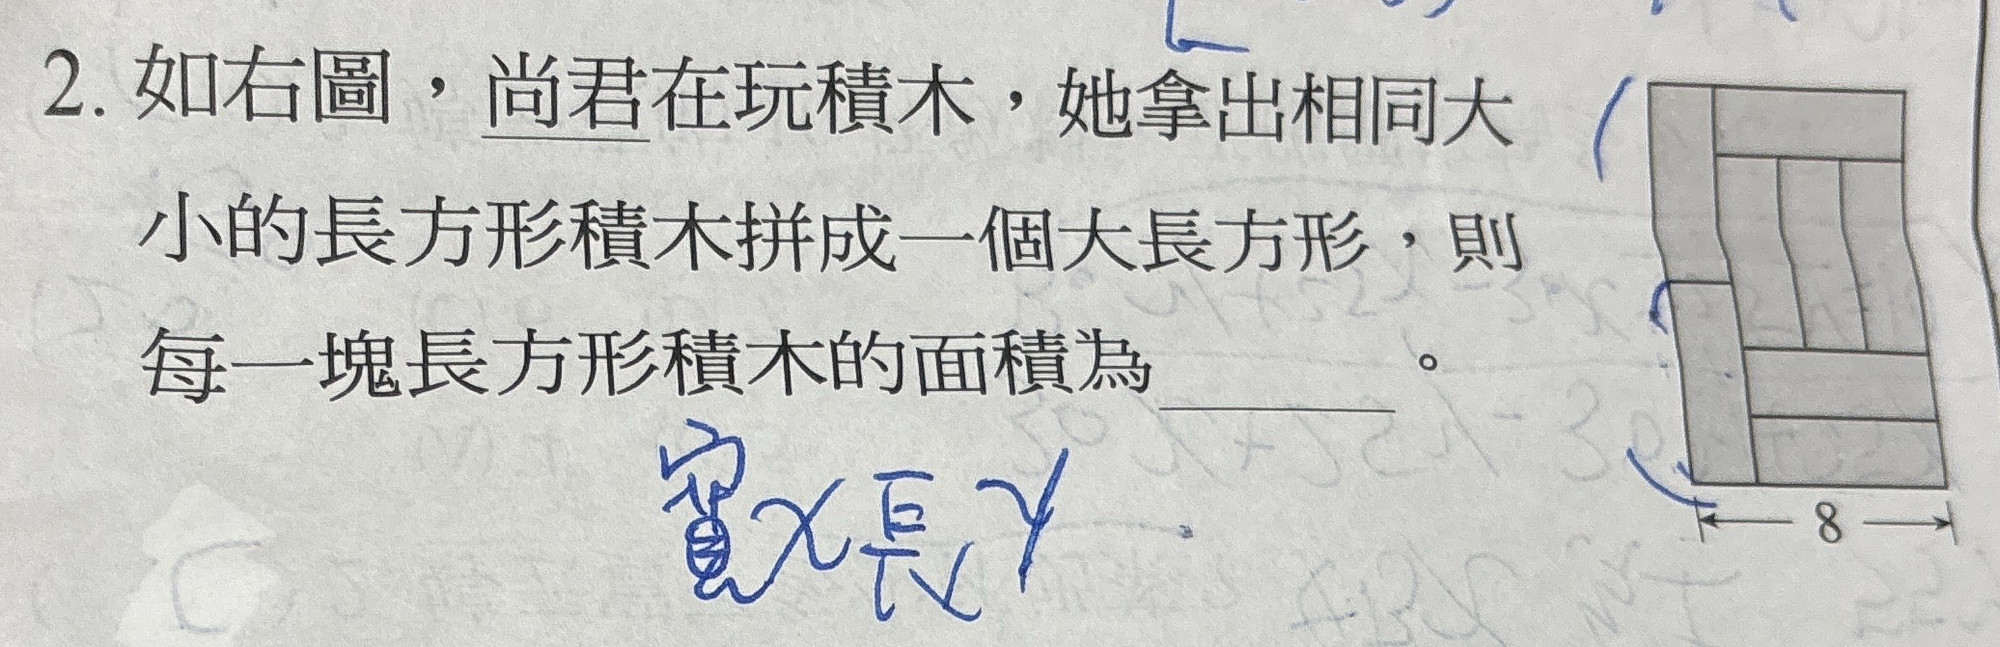 2. 如右圖，尚君在玩積木，她拿出相同大
小的長方形積木拼成一個大長方形，則
每一塊長方形積木的面積為＿＿＿。
8
寬x長y